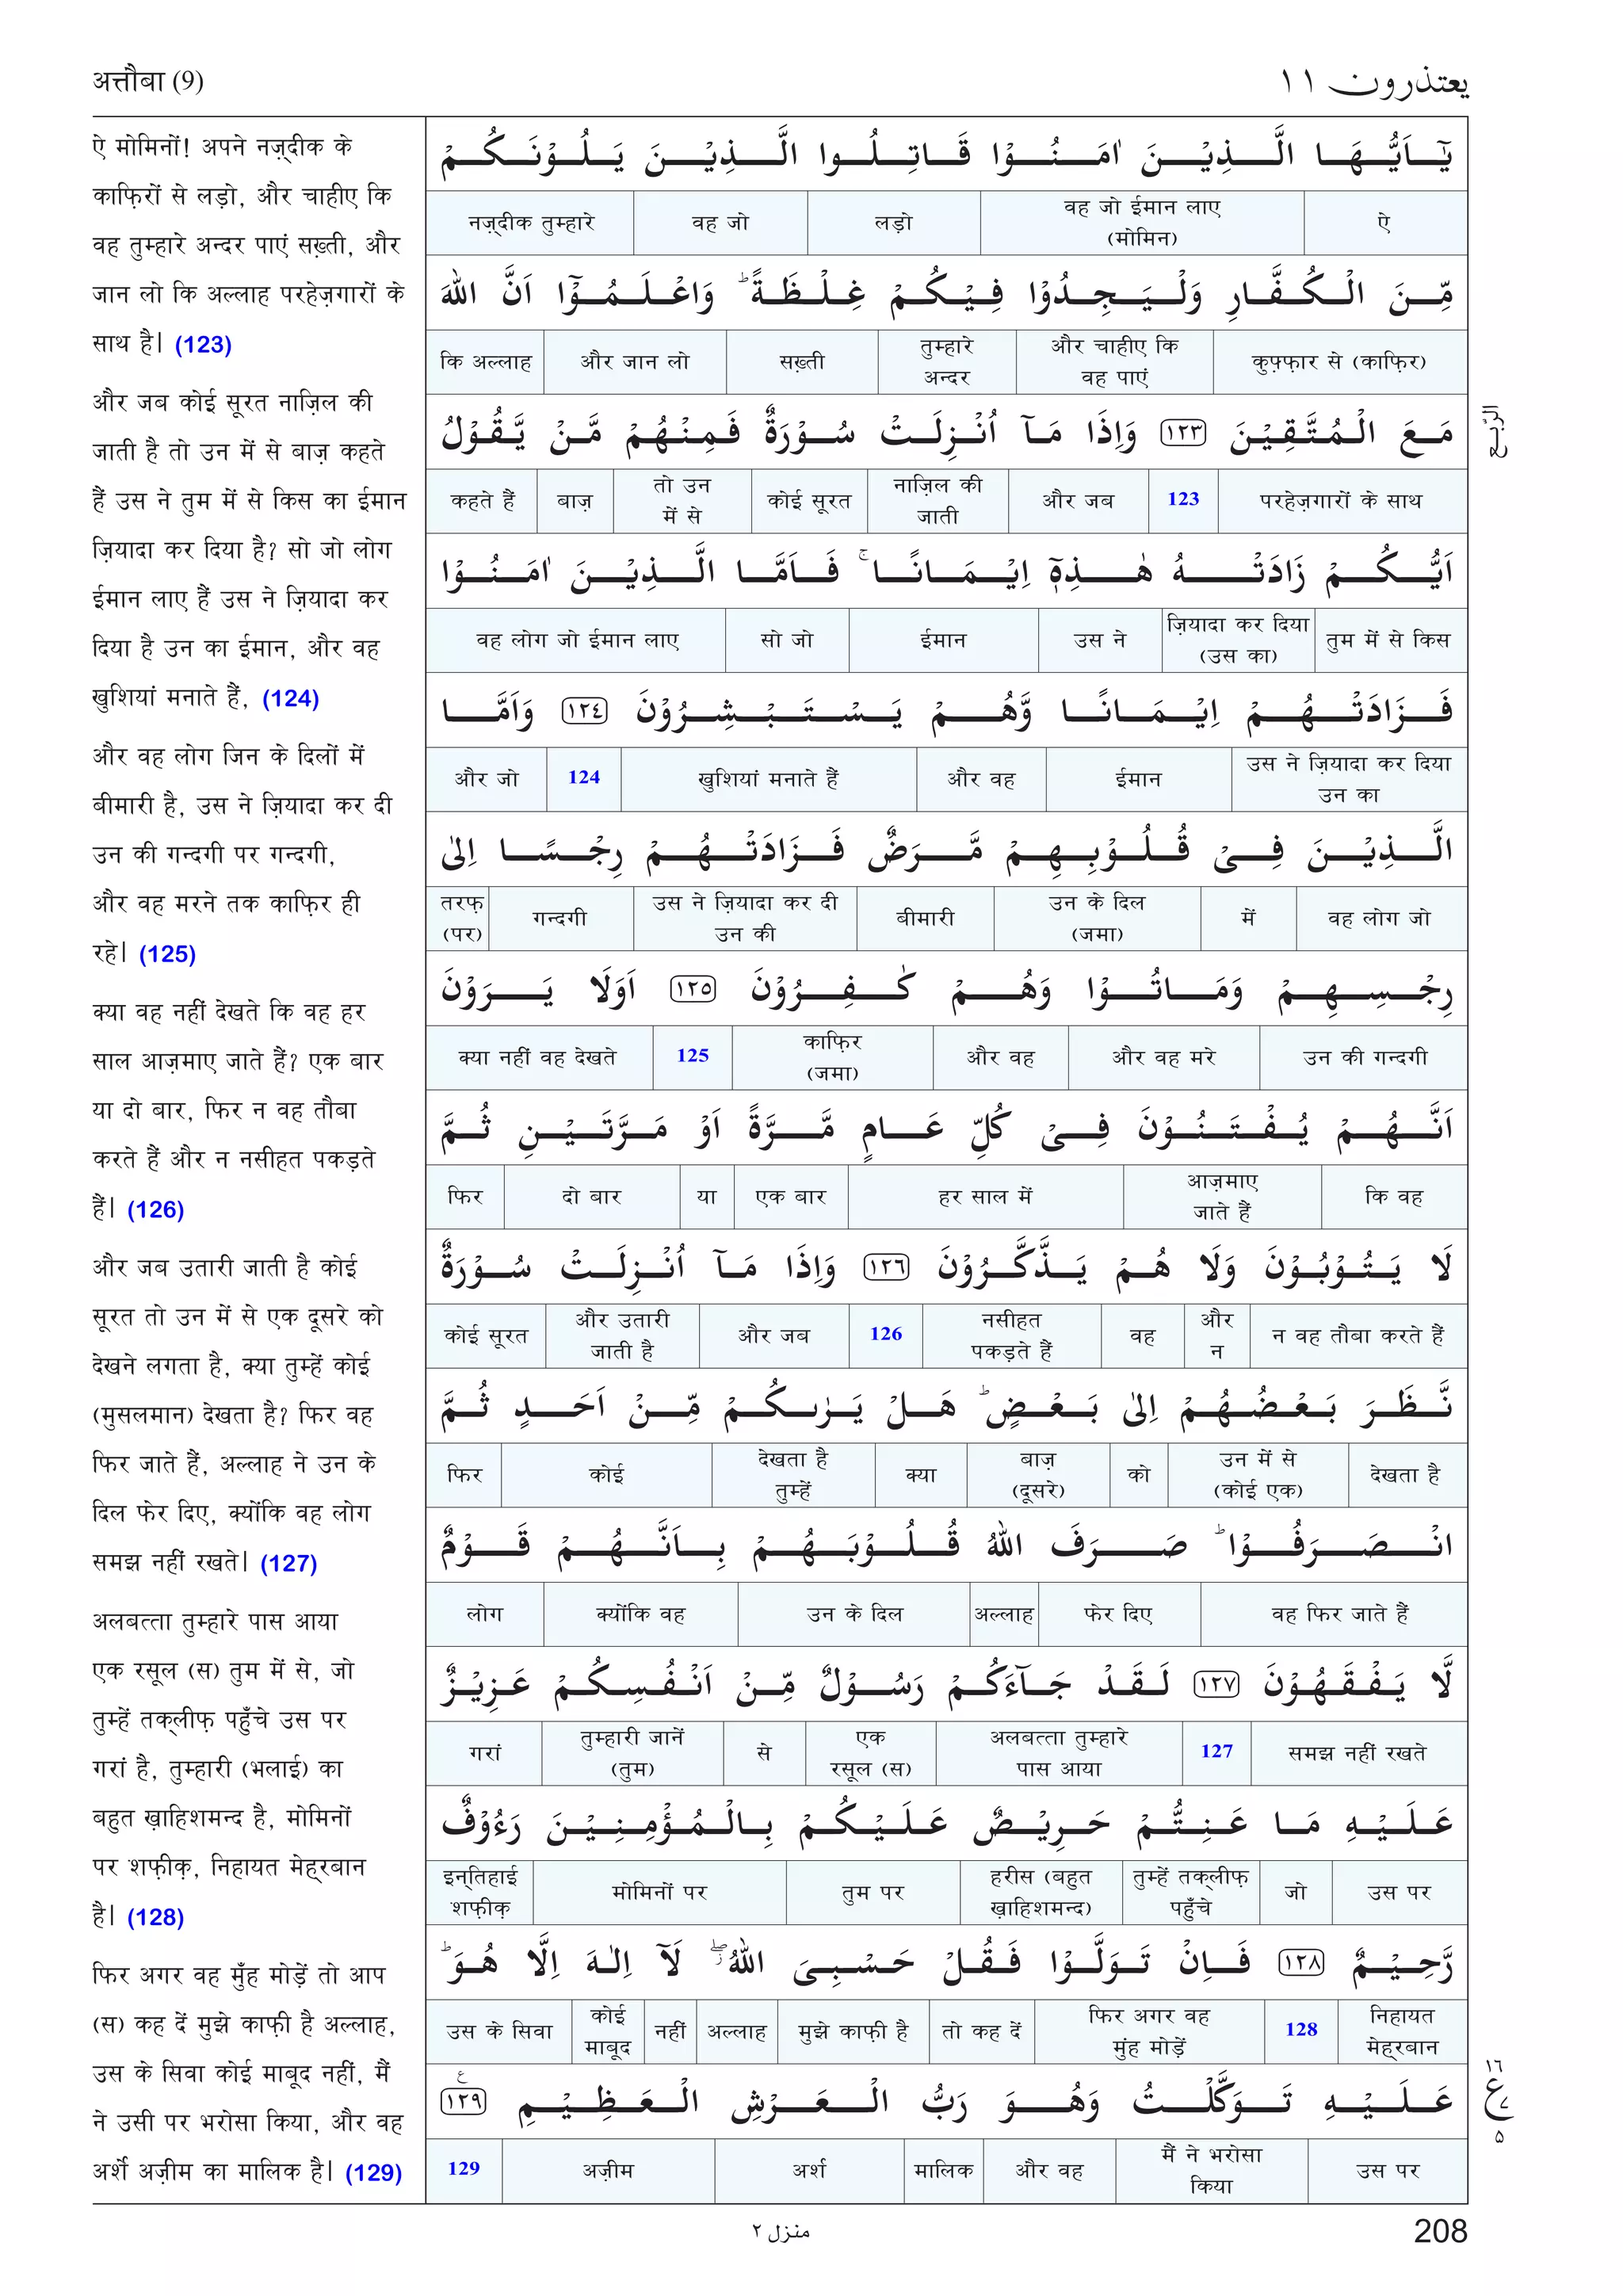 अत्तौबा (9)
يعتذرون ١١
ऐ मोमिनों! अपने नज़्दीक के
काफ़िरों से लड़ो, और चाहीए कि
वह तुम्हारे अन्दर पाएं सख़्ती, और
जान लो कि अल्लाह परहेज़गारों के
साथ है। (123)
और जब कोई सूरत नाज़िल की
जाती है तो उन में से बाज़ कहते
हैं उस ने तुम में से किस का ईमान
ज़ियादा कर दिया है? सो जो लोग
ईमान लाए हैं उस ने ज़ियादा कर
दिया है उन का ईमान, और वह
खुशियां मनाते हैं, (124)
और वह लोग जिन के दिलों में
बीमारी है, उस ने ज़ियादा कर दी
उन की गन्दगी पर गन्दगी,
और वह मरने तक काफ़िर ही
रहे। (125)
क्या वह नहीं देखते कि वह हर
साल आज़माए जाते हैं? एक बार
या दो बार, फिर न वह तौबा
करते हैं और न नसीहत पकड़ते
हैं। (126)
और जब उतारी जाती है कोई
सूरत तो उन में से एक दूसरे को
देखने लगता है, क्या तुम्हें कोई
(मुसलमान) देखता है? फिर वह
फिर जाते हैं, अल्लाह ने उन के
दिल फेर दिए, क्योंकि वह लोग
समझ नहीं रखते। (127)
अलबत्ता तुम्हारे पास आया
एक रसूल (स) तुम में से, जो
तुम्हें तक्लीफ़ पहुँचे उस पर
गरां है, तुम्हारी (भलाई) का
बहुत ख़ाहिशमन्द है, मोमिनों
पर शफ़ीक़, निहायत मेह्रबान
है। (128)
फिर अगर वह मुँह मोड़ें तो आप
(स) कह दें मुझे काफ़ी है अल्लाह,
उस के सिवा कोई माबूद नहीं, मैं
ने उसी पर भरोसा किया, और वह
अर्शे अज़ीम का मालिक है। (129)
يٰٓاَيُّهَا الَّذِيْنَ اٰمَنُوْا قَاتِلُوا الَّذِيْنَ يَلُوْنَكُمْ
ऐ | वह जो ईमान लाए (मोमिन) | लड़ो | वह जो | नज़्दीक तुम्हारे
مِّنَ الْكُفَّارِ وَلْيَجِدُوْا فِيْكُمْ غِلْظَةً ؕ وَاعْلَمُوْٓا اَنَّ اللّٰهَ
कुफ़्फ़ार से (काफ़िर) | और चाहीए कि वह पाएं | तुम्हारे अन्दर | सख़्ती | और जान लो | कि अल्लाह
مَعَ الْمُتَّقِيْنَ ١٢٣ وَاِذَا مَآ اُنْزِلَتْ سُوْرَةٌ فَمِنْهُمْ مَّنْ يَّقُوْلُ
परहेज़गारों के साथ | 123 | और जब | नाज़िल की जाती | कोई सूरत | तो उन में से | बाज़ | कहते हैं
اَيُّكُمْ زَادَتْهُ هٰذِهٖٓ اِيْمَانًا ۚ فَاَمَّا الَّذِيْنَ اٰمَنُوْا
तुम में से किस | ज़ियादा कर दिया (उस का) | उस ने | ईमान | सो जो | वह लोग जो ईमान लाए
فَزَادَتْهُمْ اِيْمَانًا وَّهُمْ يَسْتَبْشِرُوْنَ ١٢٤ وَاَمَّا
उस ने ज़ियादा कर दिया उन का | ईमान | और वह | खुशियां मनाते हैं | 124 | और जो
الَّذِيْنَ فِيْ قُلُوْبِهِمْ مَّرَضٌ فَزَادَتْهُمْ رِجْسًا اِلٰى
वह लोग जो | में | उन के दिल (जमा) | बीमारी | उस ने ज़ियादा कर दी उन की | गन्दगी | तरफ़ (पर)
رِجْسِهِمْ وَمَاتُوْا وَهُمْ كٰفِرُوْنَ ١٢٥ اَوَلَا يَرَوْنَ
उन की गन्दगी | और वह मरे | और वह | काफ़िर (जमा) | 125 | क्या नहीं वह देखते
اَنَّهُمْ يُفْتَنُوْنَ فِيْ كُلِّ عَامٍ مَّرَّةً اَوْ مَرَّتَيْنِ ثُمَّ
कि वह | आज़माए जाते हैं | हर साल में | एक बार | या | दो बार | फिर
لَا يَتُوْبُوْنَ وَلَا هُمْ يَذَّكَّرُوْنَ ١٢٦ وَاِذَا مَآ اُنْزِلَتْ سُوْرَةٌ
न वह तौबा करते हैं | और न | वह | नसीहत पकड़ते हैं | 126 | और जब | और उतारी जाती है | कोई सूरत
نَّظَرَ بَعْضُهُمْ اِلٰى بَعْضٍ ؕ هَلْ يَرٰىكُمْ مِّنْ اَحَدٍ ثُمَّ
देखता है | उन में से (कोई एक) | को | बाज़ (दूसरे) | क्या | देखता है तुम्हें | कोई | फिर
انْصَرَفُوْا ؕ صَرَفَ اللّٰهُ قُلُوْبَهُمْ بِاَنَّهُمْ قَوْمٌ
वह फिर जाते हैं | फेर दिए | अल्लाह | उन के दिल | क्योंकि वह | लोग
لَّا يَفْقَهُوْنَ ١٢٧ لَقَدْ جَآءَكُمْ رَسُوْلٌ مِّنْ اَنْفُسِكُمْ عَزِيْزٌ
समझ नहीं रखते | 127 | अलबत्ता तुम्हारे पास आया | एक रसूल (स) | से | तुम्हारी जानें (तुम) | गरां
عَلَيْهِ مَا عَنِتُّمْ حَرِيْصٌ عَلَيْكُمْ بِالْمُؤْمِنِيْنَ رَءُوْفٌ
उस पर | जो | तुम्हें तक्लीफ़ पहुँचे | हरीस (बहुत ख़ाहिशमन्द) | तुम पर | मोमिनों पर | इन्तिहाई शफ़ीक़
رَّحِيْمٌ ١٢٨ فَاِنْ تَوَلَّوْا فَقُلْ حَسْبِيَ اللّٰهُ ۖ لَآ اِلٰهَ اِلَّا هُوَ ؕ
निहायत मेह्रबान | 128 | फिर अगर वह मुंह मोड़ें | तो कह दें | मुझे काफ़ी है | अल्लाह | नहीं | कोई माबूद | उस के सिवा
عَلَيْهِ تَوَكَّلْتُ وَهُوَ رَبُّ الْعَرْشِ الْعَظِيْمِ ١٢٩
उस पर | मैं ने भरोसा किया | और वह | मालिक | अर्श | अज़ीम | 129
الربع
١٦
ع
٧
٥
منزل ٢
208